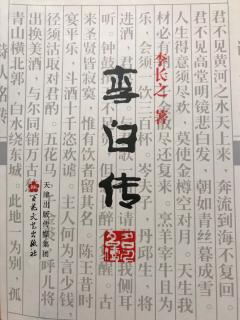 君不见黄河之水天上来 奔流到海不复回。
君不见高堂明镜悲白发 朝如青丝暮成雪
人生得意须尽欢，莫使金樽空对月。天生我
材必有 复来。烹羊宰牛且为
乐，会须一饮三百杯。岑夫子，丹丘生，将
进酒，君 我侧耳
听。钟鼓 醒。古
来圣贤皆寂寞，惟有饮者留其名。陈王昔时
宴平乐，斗酒十千恣欢谑。主人何为言少钱
径须沽取对君酌。五花马 呼儿将
出换美酒，与尔同销万
青山横北郭，白水绕东城。此地一为别，孤
李长之 著
李白传
天津出版传媒集团
百花文艺出版社